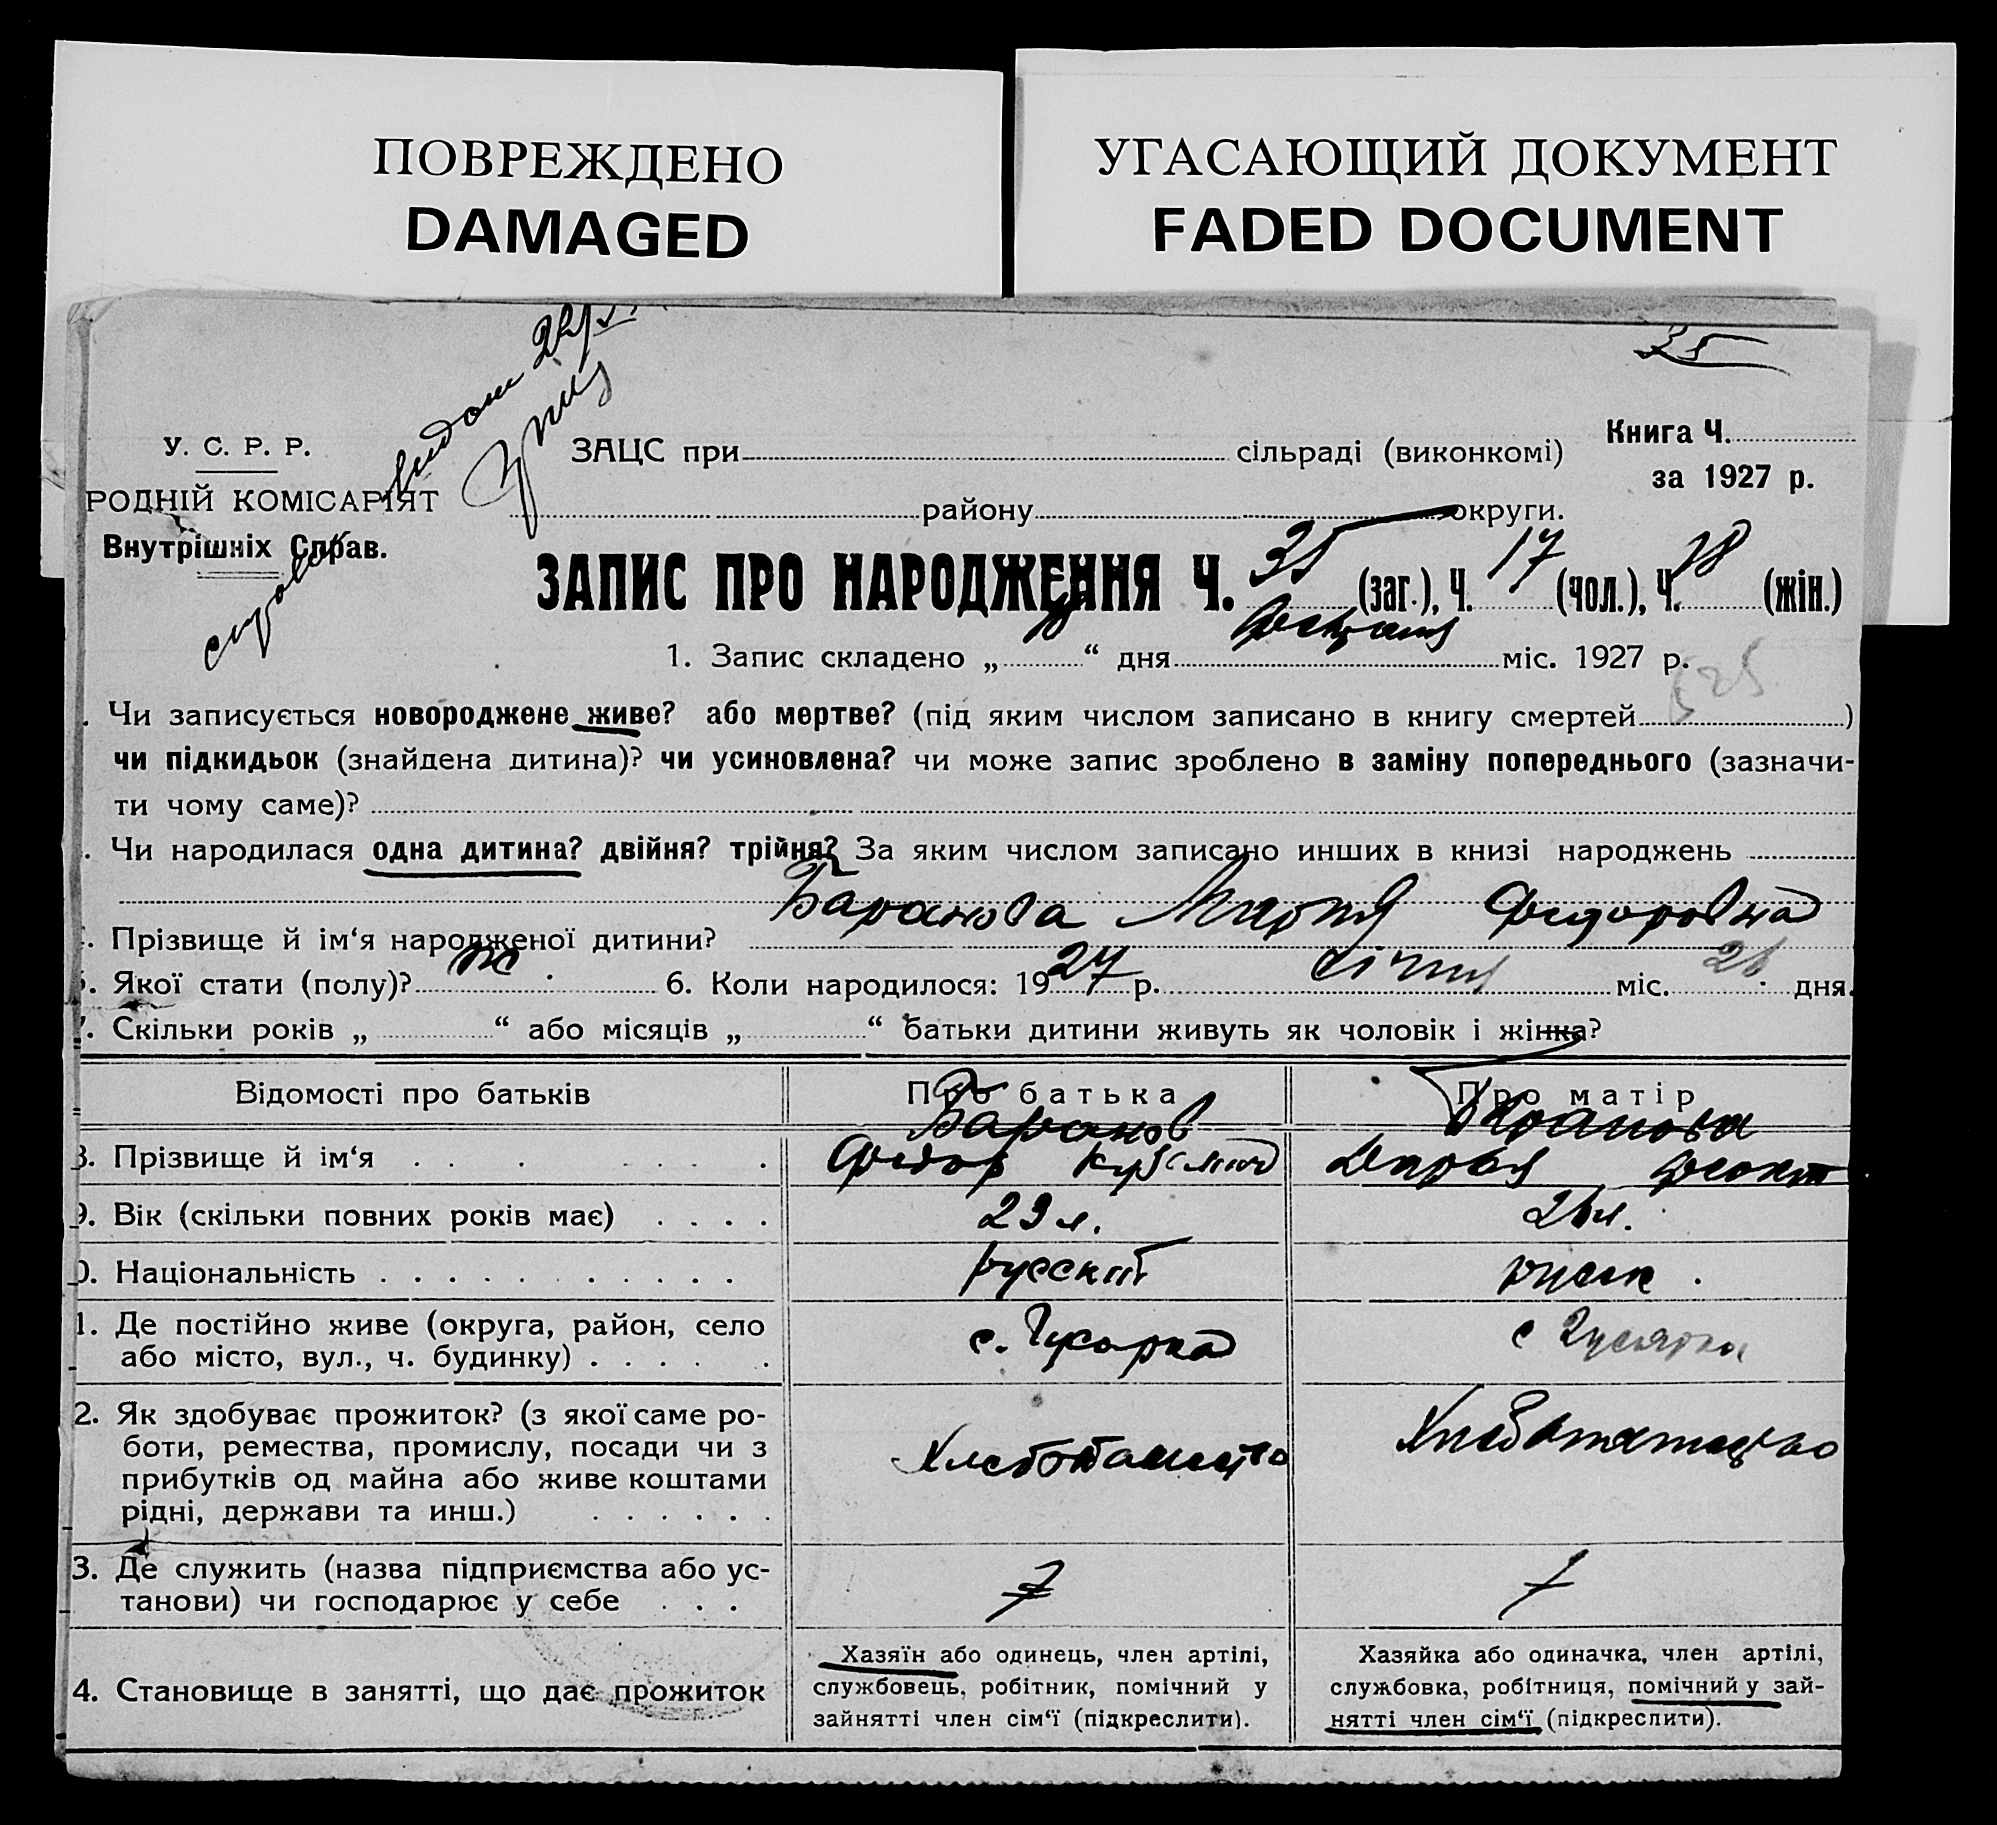 ПОВРЕЖДЕНО
DAMAGED
УГАСАЮЩИЙ ДОКУМЕНТ
FADED DOCUMENT
35
У. С. Р. Р.
РОДНІЙ КОМІСАРІЯТ
Внутрішніх Справ.
ЗАЦС при сільраді (виконкомі)
району округи.
Книга Ч.
за 1927 р.
ЗАПИС ПРО НАРОДЖЕННЯ Ч. 35 (заг.), Ч. 17 (чол.), Ч. 18 (жін.)
1. Запис складено „ “ дня міс. 1927 р.
. Чи записується новороджене живе? або мертве? (під яким числом записано в книгу смертей )
чи підкидьок (знайдена дитина)? чи усиновлена? чи може запис зроблено в заміну попереднього (зазначи-
ти чому саме)?
. Чи народилася одна дитина? двійня? трійня? За яким числом записано инших в книзі народжень
. Прізвище й ім‘я народженої дитини? Баранова Мария Федоровна
5. Якої стати (полу)? ж 6. Коли народилося: 1927 р. січня міс. 26 дня.
7. Скільки років „ “ або місяців „ “ батьки дитини живуть як чоловік і жінка?
Відомості про батьків Про батька Про матір
8. Прізвище й ім‘я Баранов Федор Кузьмич Дарья
9. Вік (скільки повних років має) 29 л. 26 л.
0. Національність русский русск.
1. Де постійно живе (округа, район, село
або місто, вул., ч. будинку) с. Гусарка с Гусарка
2. Як здобуває прожиток? (з якої саме ро-
боти, ремества, промислу, посади чи з
прибутків од майна або живе коштами
рідні, держави та инш.)
3. Де служить (назва підприємства або ус-
танови) чи господарює у себе
4. Становище в занятті, що дає прожиток
Хазяїн або одинець, член артілі,
службовець, робітник, помічний у
зайнятті член сім‘ї (підкреслити).
Хазяйка або одиначка, член артілі,
службовка, робітниця, помічний у зай-
нятті член сім‘ї (підкреслити).